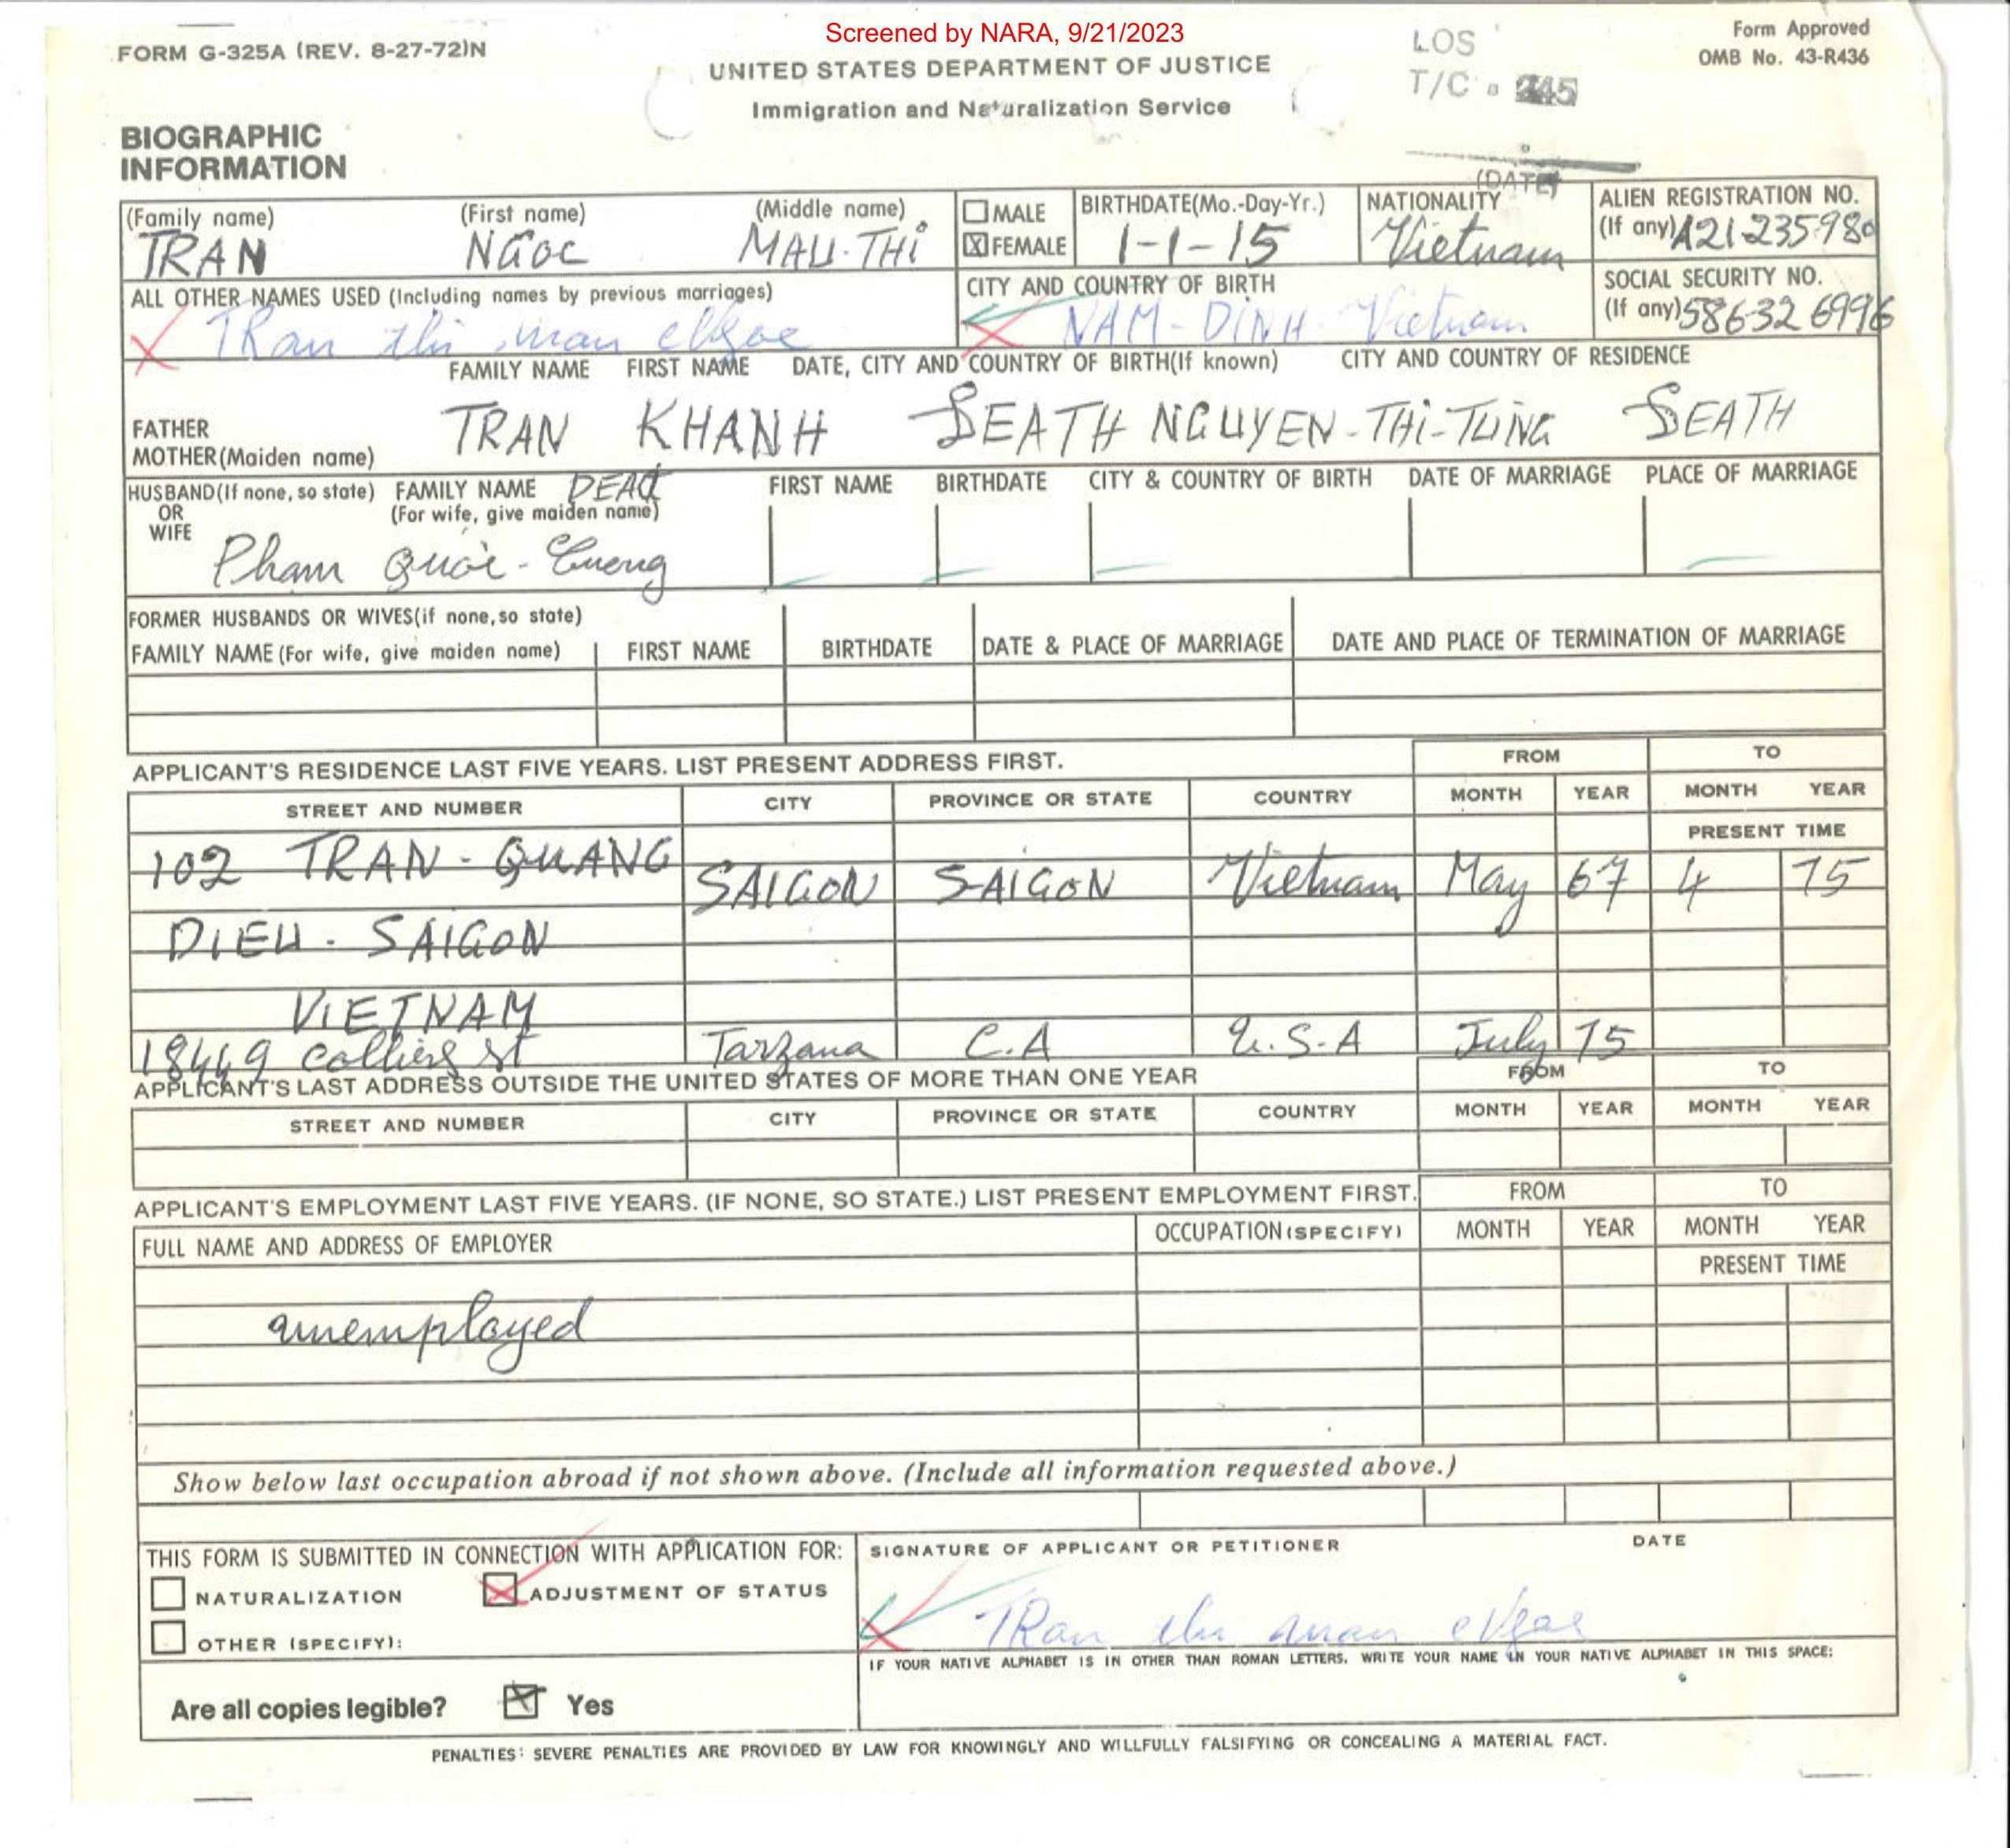 Screened by NARA, 9/21/2023
FORM G-325A (REV. 8-27-72)N
UNITED STATES DEPARTMENT OF JUSTICE
Immigration and Naturalization Service
LOS
T/C
Form Approved
OMB No. 43-R436
BIOGRAPHIC
INFORMATION
(DATE)
(Family name) (First name) (Middle name)
TRAN NGOC MAU-THI
MALE
X FEMALE
BIRTHDATE(Mo.-Day-Yr.)
1-1-15
NATIONALITY
Vietnam
ALIEN REGISTRATION NO.
(If any) A21-235-980
ALL OTHER NAMES USED (Including names by previous marriages)
TRan thi man
CITY AND COUNTRY OF BIRTH
NAM-DINH-Vietnam
SOCIAL SECURITY NO.
(If any) 586326996
FAMILY NAME FIRST NAME DATE, CITY AND COUNTRY OF BIRTH(If known) CITY AND COUNTRY OF RESIDENCE
FATHER
MOTHER(Maiden name)
TRAN KHANH DEATH NGUYEN-THI-TUNG DEATH
HUSBAND(If none, so state) OR WIFE
FAMILY NAME DEAD
(For wife, give maiden name)
FIRST NAME BIRTHDATE CITY & COUNTRY OF BIRTH DATE OF MARRIAGE PLACE OF MARRIAGE
Pham Quôc-Cuong
FORMER HUSBANDS OR WIVES(if none, so state)
FAMILY NAME (For wife, give maiden name) FIRST NAME BIRTHDATE DATE & PLACE OF MARRIAGE DATE AND PLACE OF TERMINATION OF MARRIAGE
APPLICANT'S RESIDENCE LAST FIVE YEARS. LIST PRESENT ADDRESS FIRST.
FROM TO
STREET AND NUMBER CITY PROVINCE OR STATE COUNTRY MONTH YEAR MONTH YEAR
PRESENT TIME
102 TRAN-QUANG SAIGON SAIGON Vietnam May 67 4 75
DIEU-SAIGON
VIETNAM
18449 Colliers st Tarzana C.A U.S.A July 75
APPLICANT'S LAST ADDRESS OUTSIDE THE UNITED STATES OF MORE THAN ONE YEAR
FROM TO
STREET AND NUMBER CITY PROVINCE OR STATE COUNTRY MONTH YEAR MONTH YEAR
APPLICANT'S EMPLOYMENT LAST FIVE YEARS. (IF NONE, SO STATE.) LIST PRESENT EMPLOYMENT FIRST.
FROM TO
FULL NAME AND ADDRESS OF EMPLOYER OCCUPATION (SPECIFY) MONTH YEAR MONTH YEAR
PRESENT TIME
unemployed
Show below last occupation abroad if not shown above. (Include all information requested above.)
THIS FORM IS SUBMITTED IN CONNECTION WITH APPLICATION FOR:
NATURALIZATION
ADJUSTMENT OF STATUS
OTHER (SPECIFY):
SIGNATURE OF APPLICANT OR PETITIONER DATE
TRan thi man
IF YOUR NATIVE ALPHABET IS IN OTHER THAN ROMAN LETTERS, WRITE YOUR NAME IN YOUR NATIVE ALPHABET IN THIS SPACE:
Are all copies legible? Yes
PENALTIES: SEVERE PENALTIES ARE PROVIDED BY LAW FOR KNOWINGLY AND WILLFULLY FALSIFYING OR CONCEALING A MATERIAL FACT.